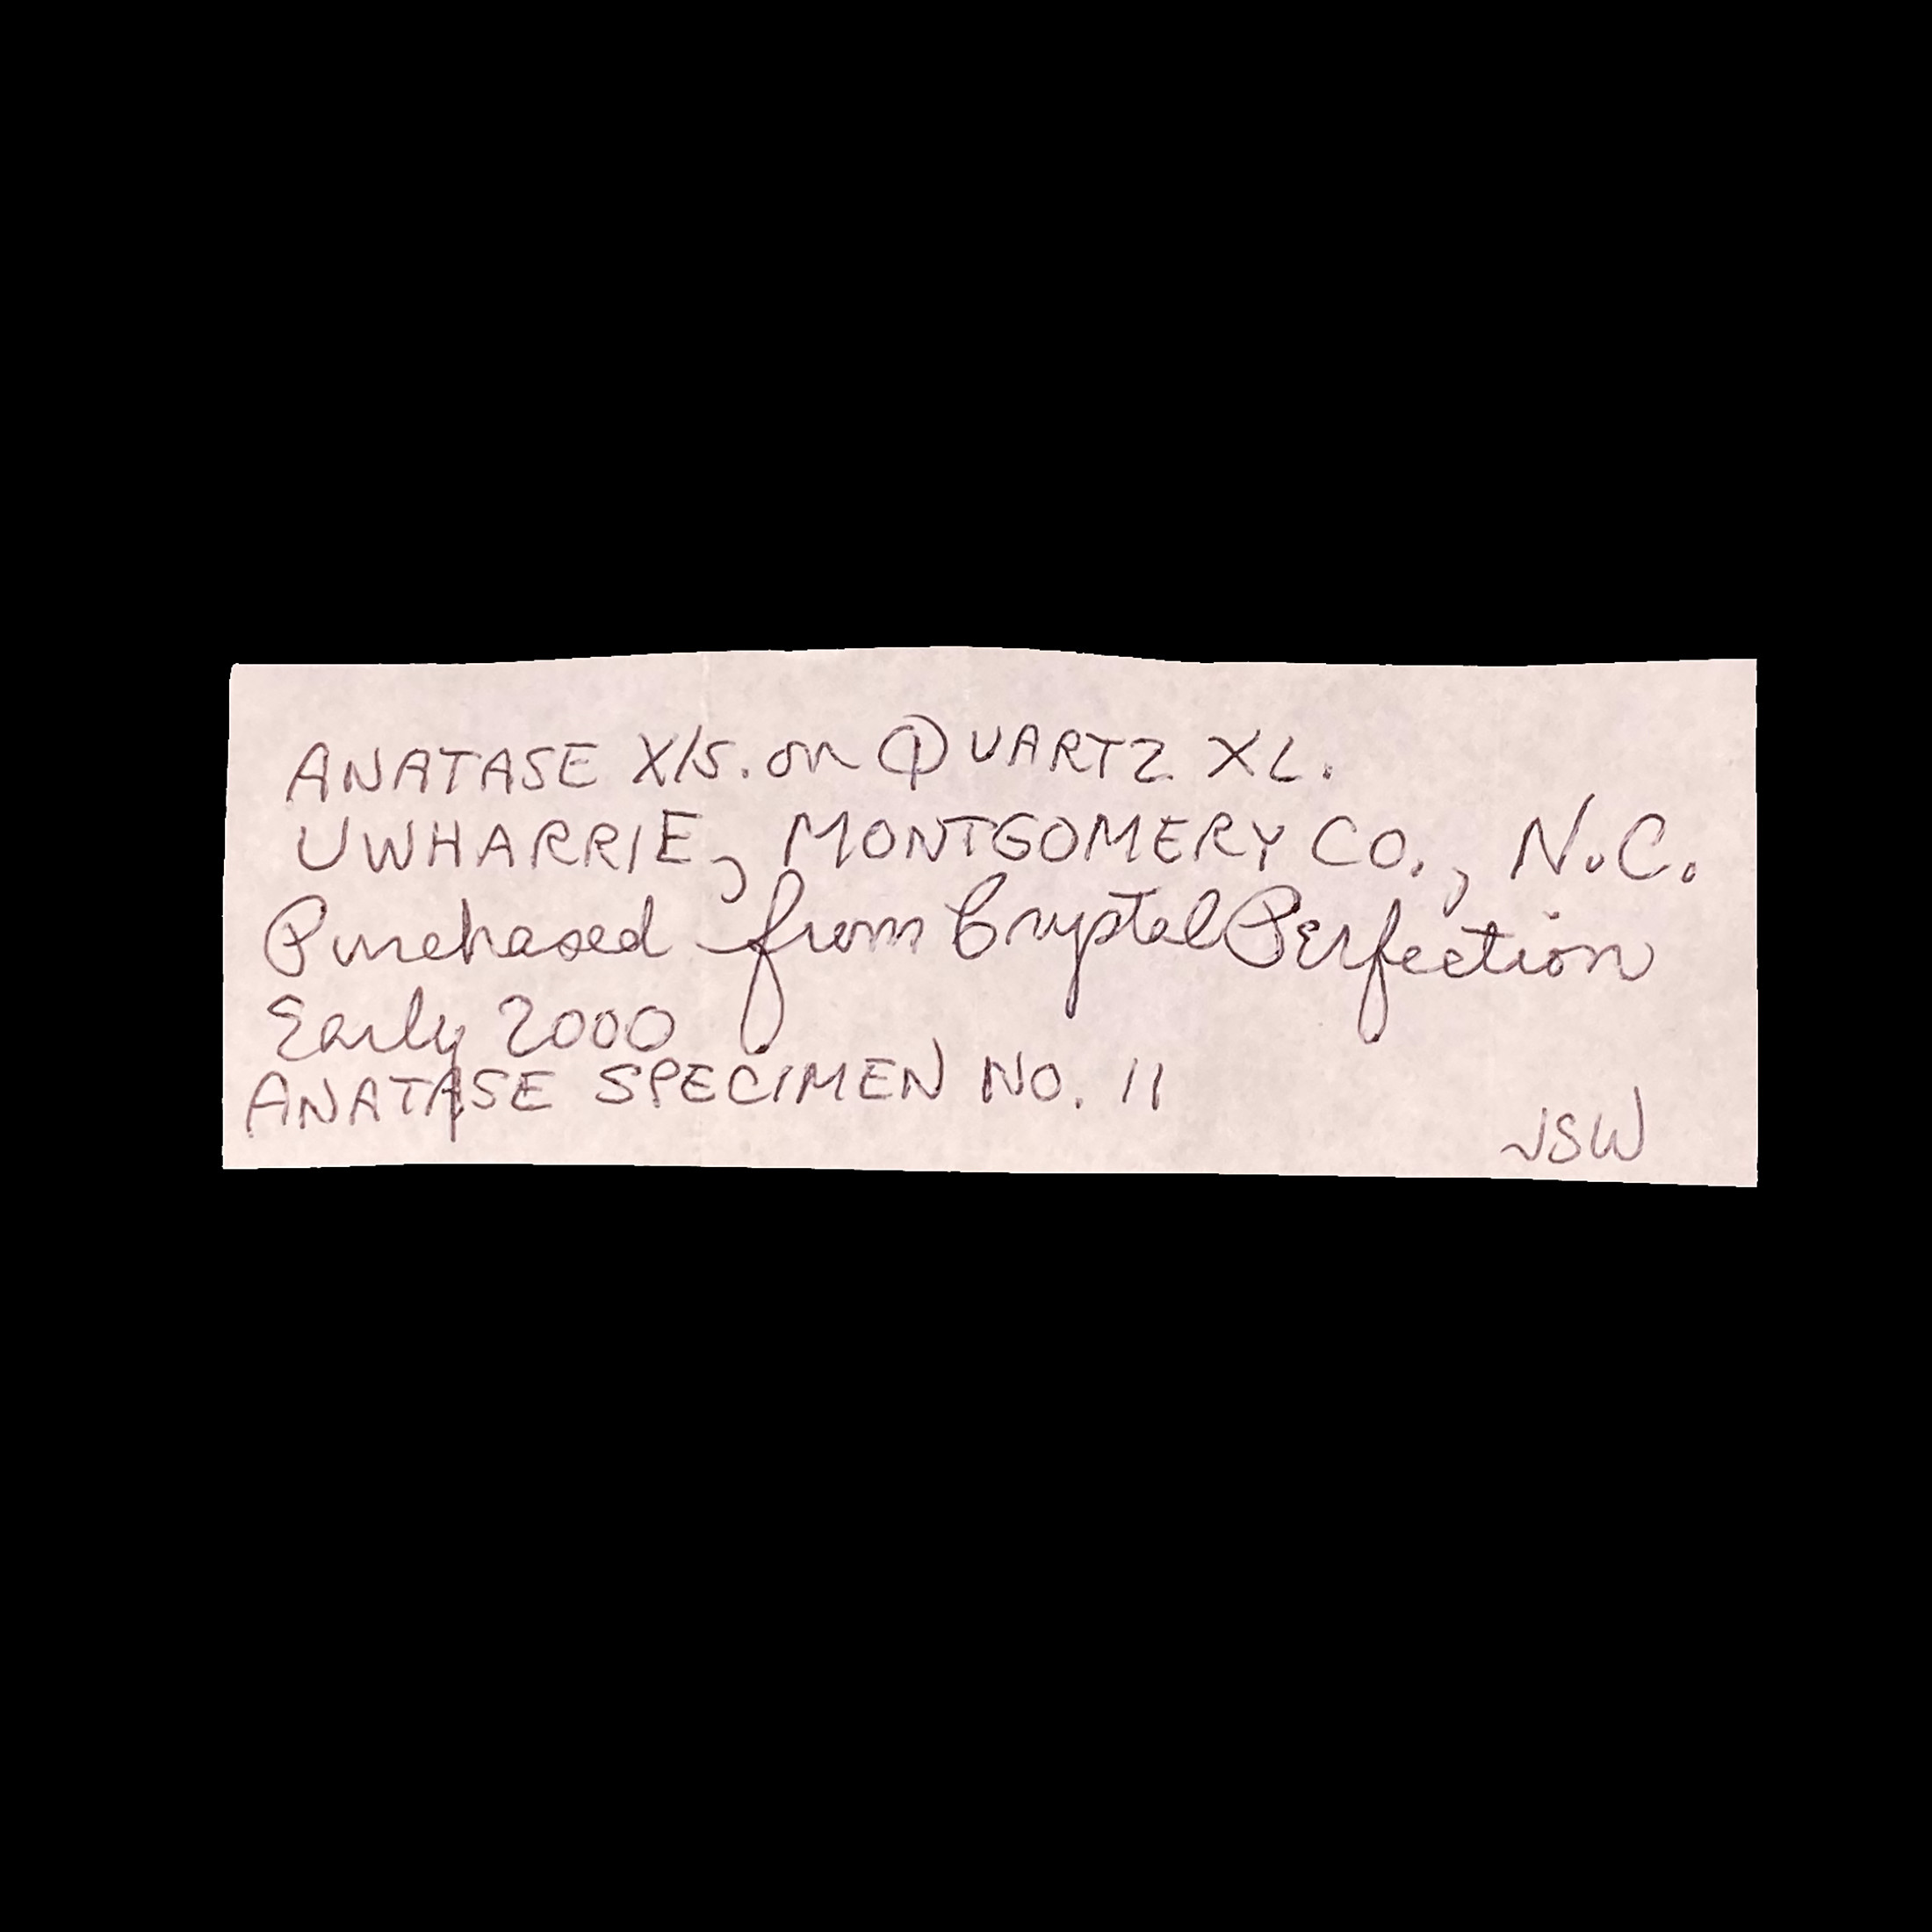 ANATASE Xls. on QUARTZ XL.
UWHARRIE, MONTGOMERY CO., N.C.
Purchased from Crystal Perfection
Early 2000
ANATASE SPECIMEN NO. 11
JSW